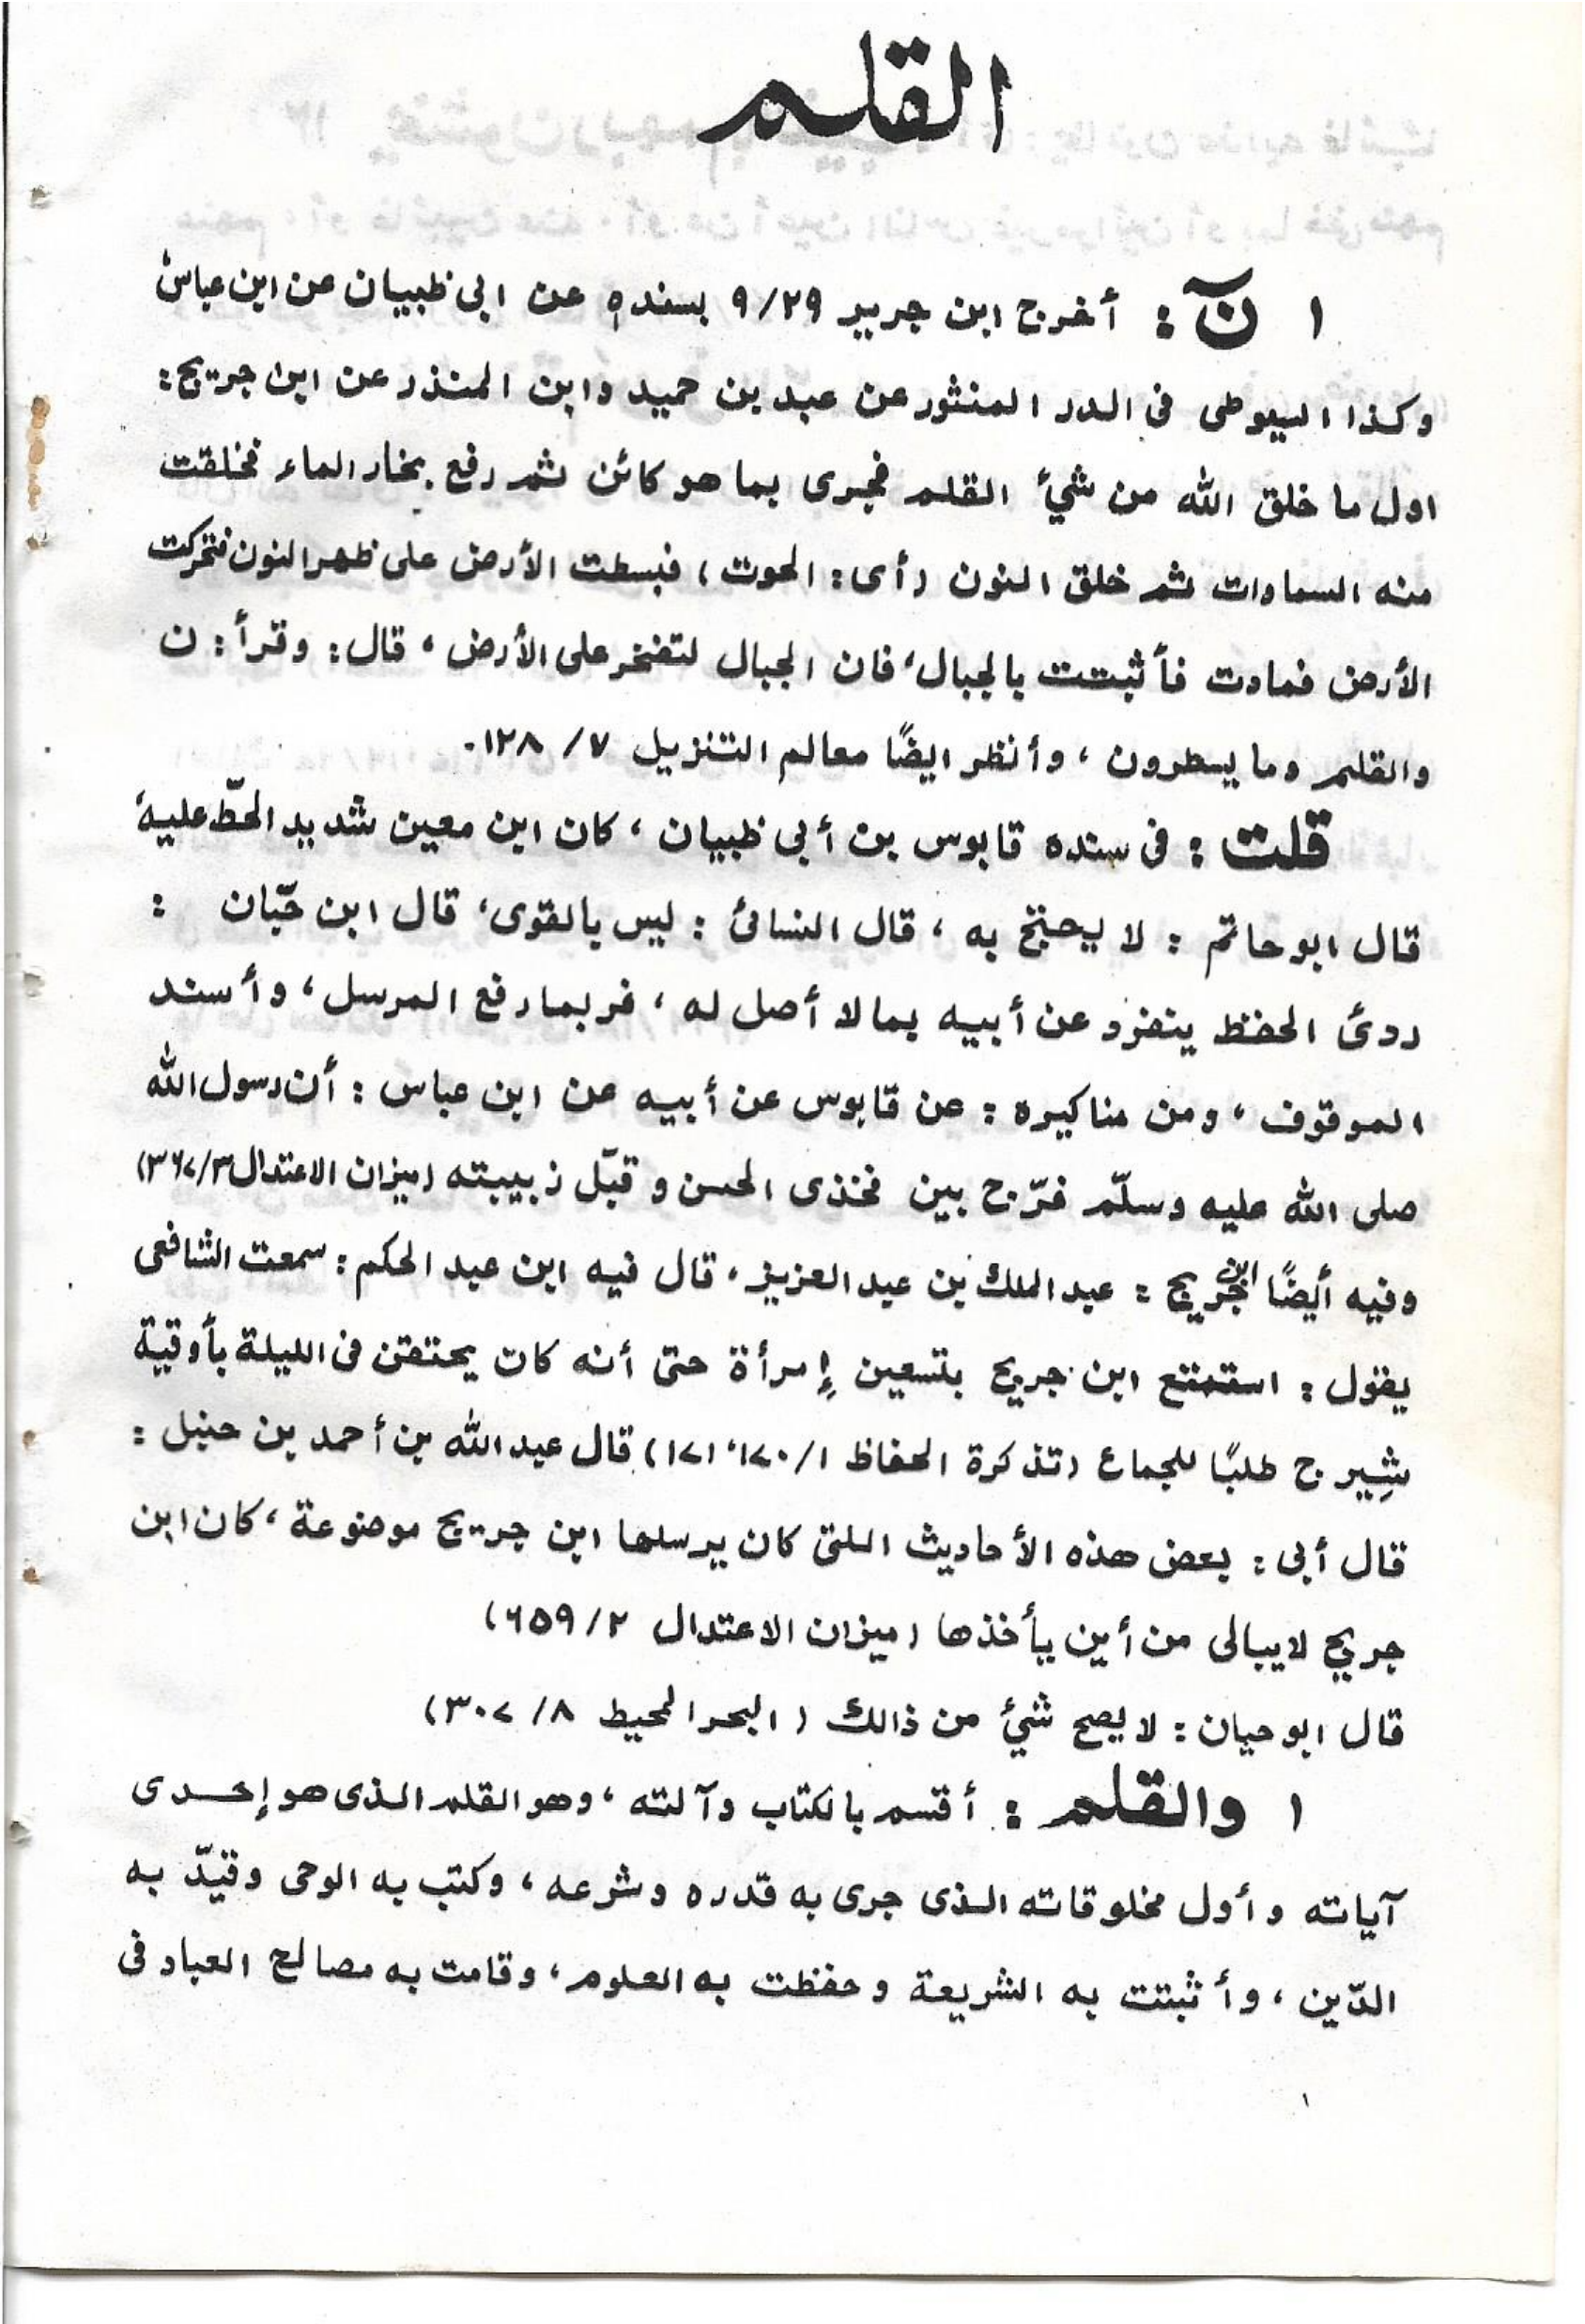 القلم
١ نٓ : أخرج ابن جرير ٩/٢٩ بسنده عن ابى ظبيان عن ابن عباس
وكذا السيوطى فى الدر المنثور عن عبد بن حميد وابن المنذر عن ابن جريج :
اول ما خلق الله من شيئ القلم فجرى بما هو كائن ثم رفع بخار الماء فخلقت
منه السماوات ثم خلق النون (أى : الحوت) فبسطت الأرض على ظهر النون فتحركت
الأرض فمادت فأثبتت بالجبال، فان الجبال لتفخر على الأرض ، قال : وقرأ : ن
والقلم وما يسطرون ، وأنظر ايضًا معالم التنزيل ٧/ ١٢٨.
قلت : فى سنده قابوس بن أبى ظبيان ، كان ابن معين شديد الحطّ عليه
قال ابو حاتم : لا يحتج به ، قال النسائ : ليس بالقوى، قال ابن حبّان :
ردئ الحفظ ينفرد عن أبيه بما لا أصل له ، فربما رفع المرسل ، وأسند
الموقوف ، ومن مناكيره : عن قابوس عن أبيه عن ابن عباس : أن رسول الله
صلى الله عليه وسلّم فرّج بين فخذى الحسن وقبّل زبيبته (ميزان الاعتدال ٣٦٧/٣)
وفيه أيضًا ابن جريج : عبد الملك بن عبد العزيز ، قال فيه ابن عبد الحكم : سمعت الشافعى
يقول : استمتع ابن جريج بتسعين إمرأة حتى أنه كان يحتقن فى الليلة بأوقية
شِيرج طلبًا للجماع (تذكرة الحفاظ ١/ ١٧٠، ١٧١) قال عبد الله بن أحمد بن حنبل :
قال أبى : بعض هذه الأحاديث اللتى كان يرسلها ابن جريج موضوعة ، كان ابن
جريج لا يبالى من أين يأخذها (ميزان الاعتدال ٢/ ٦٥٩)
قال ابو حيان : لا يصح شيئ من ذالك ( البحر المحيط ٨/ ٣٠٧)
١ والقلم : أقسم بالكتاب وآلته ، وهو القلم الذى هو إحدى
آياته وأول مخلوقاته الذى جرى به قدره وشرعه ، وكتب به الوحى وقيّد به
الدّين ، وأثبتت به الشريعة وحفظت به العلوم ، وقامت به مصالح العباد فى
١